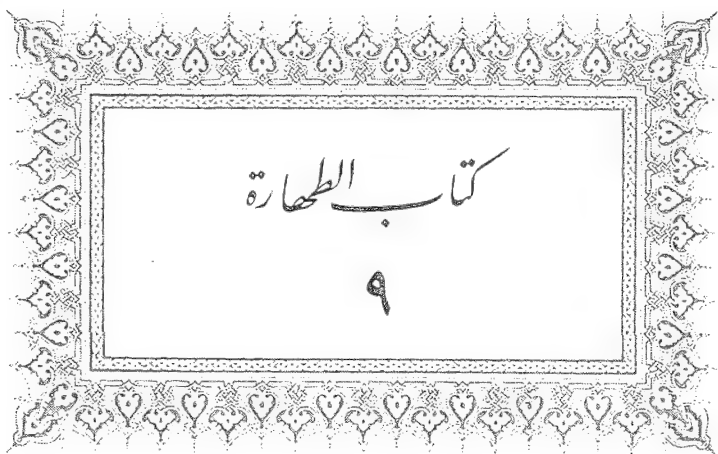 كتاب الطهارة
٩